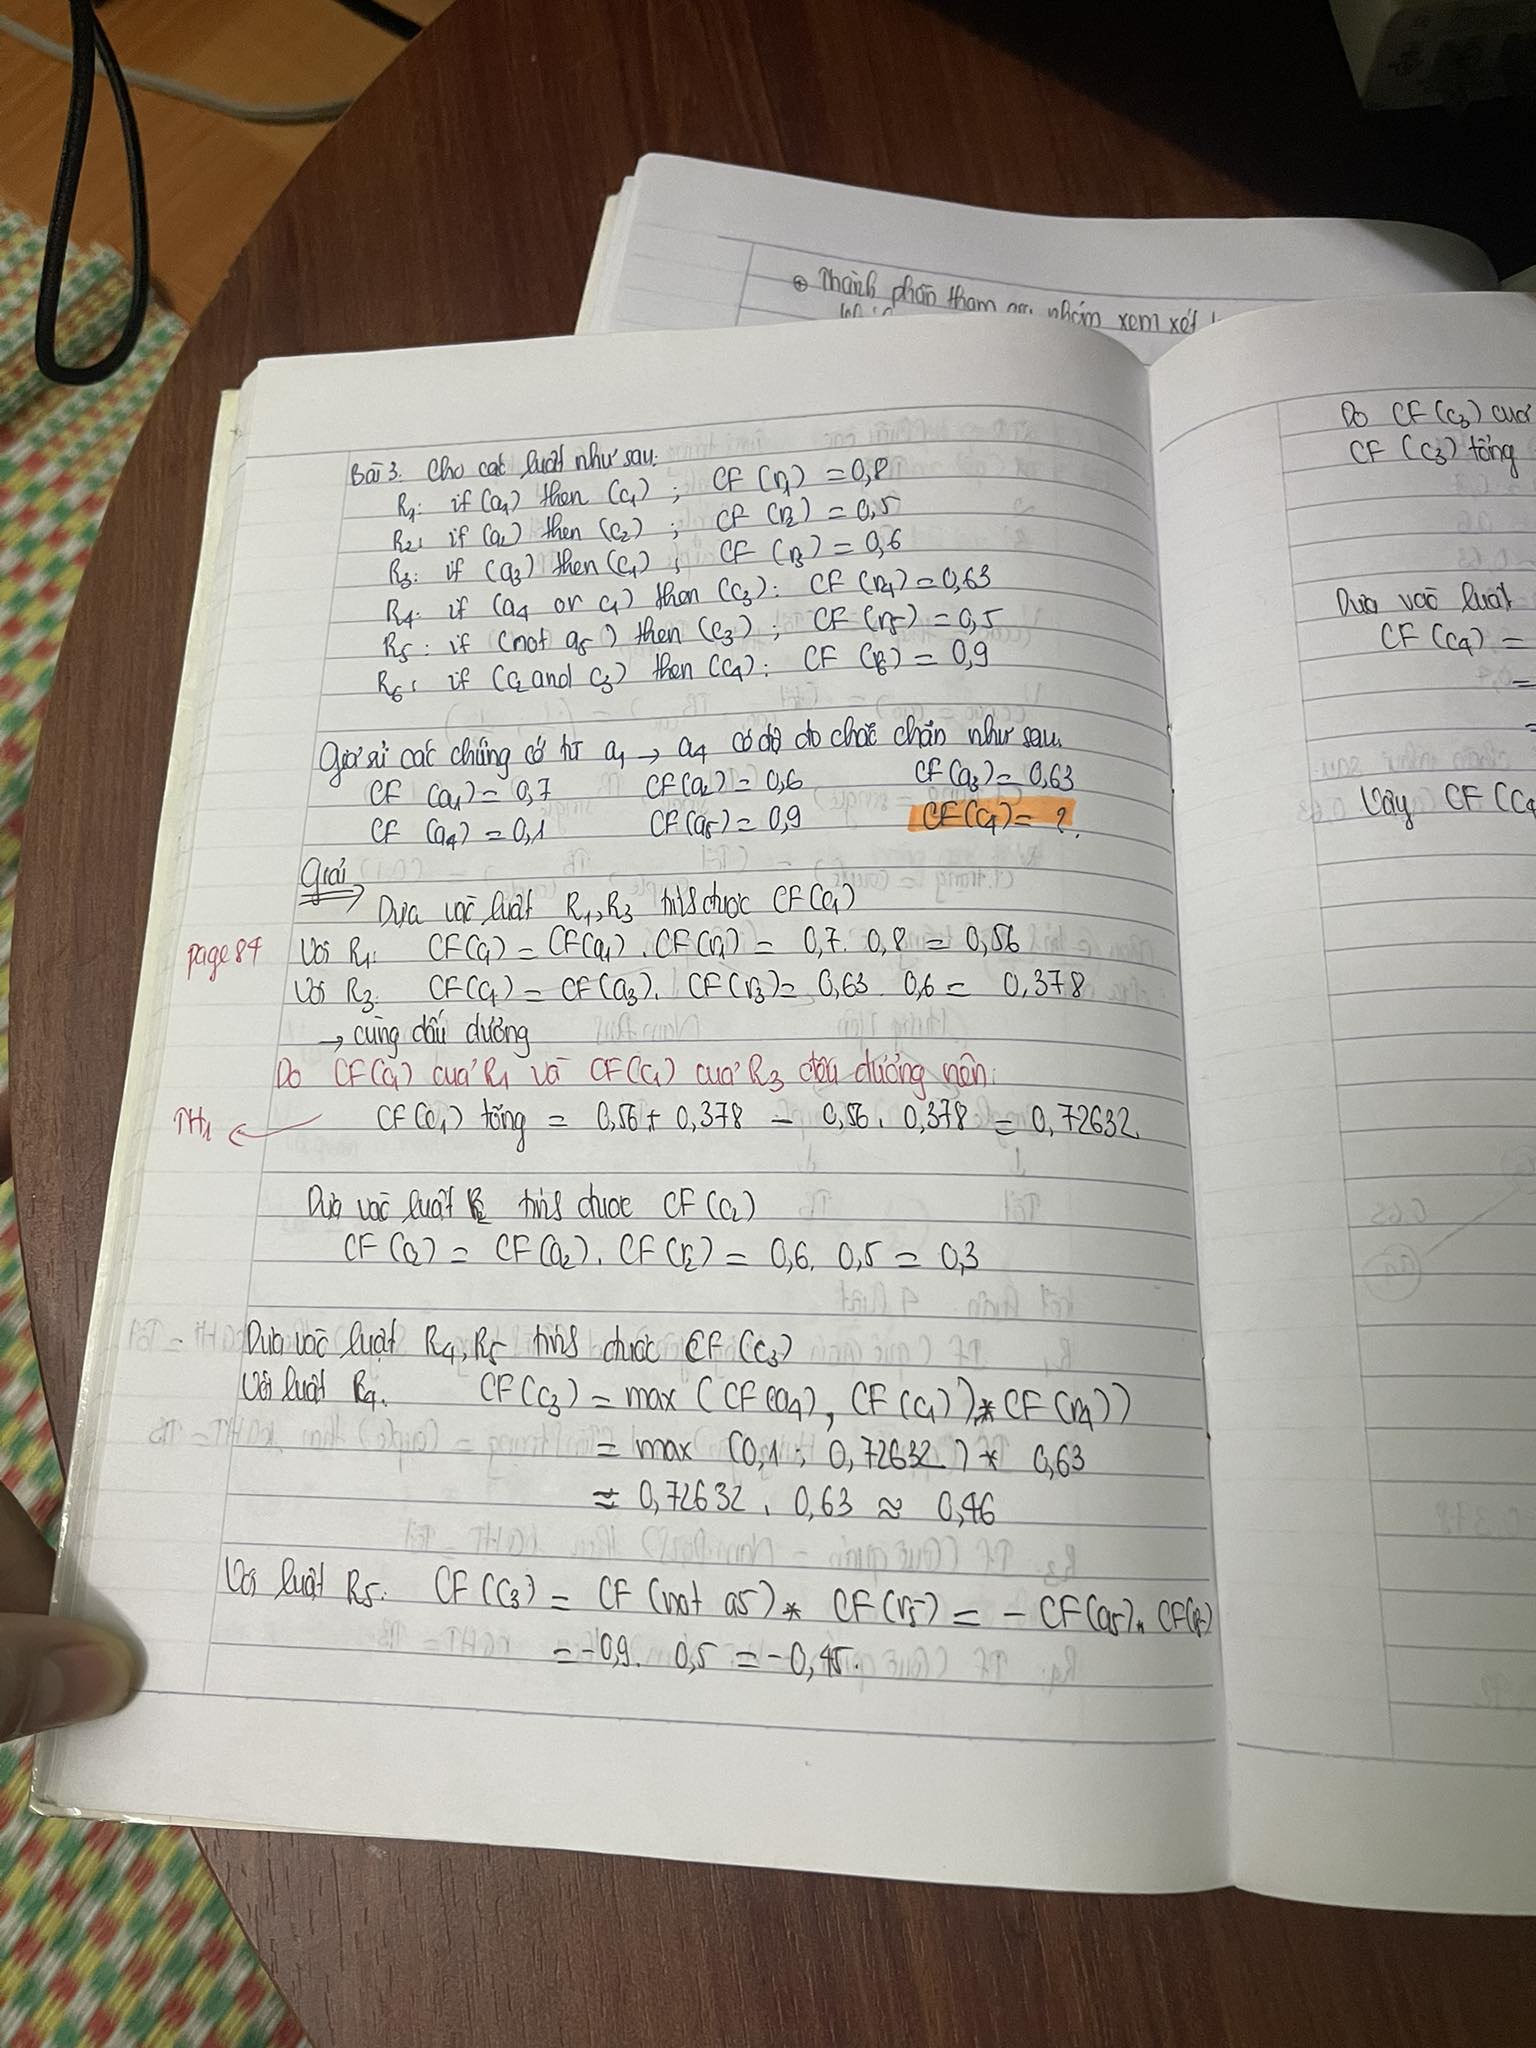 ⊕ Thành phần tham gia nhóm xem xét
Bài 3. Cho các luật như sau:
R1: if (a1) then (c1) ; CF (r1) = 0,8
R2: if (a2) then (c2) ; CF (r2) = 0,5
R3: if (a3) then (c1) ; CF (r3) = 0,6
R4: if (a4 or c1) then (c3): CF (r4) = 0,63
R5: if (not a5) then (c3) ; CF (r5) = 0,5
R6: if (c2 and c3) then (c4): CF (r6) = 0,9
Giả sử các chứng cớ từ a1 → a4 có độ đo chắc chắn như sau.
CF (a1) = 0,7 CF(a2) = 0,6 CF(a3) = 0,63
CF (a4) = 0,1 CF(a5) = 0,9 CF(c4) = ?.
Giải
Dựa vào luật R1, R3 tính được CF(c1)
page 84 Với R1: CF(c1) = CF(a1) . CF(r1) = 0,7. 0,8 = 0,56
Với R3: CF(c1) = CF(a3). CF(r3) = 0,63 . 0,6 = 0,378
→ cùng dấu dương
Do CF(c1) của R1 và CF(c1) của R3 đều dương nên:
TH1 CF(c1) tổng = 0,56 + 0,378 - 0,56 . 0,378 = 0,72632
Dựa vào luật R2 tính được CF(c2)
CF(c2) = CF(a2) . CF(r2) = 0,6. 0,5 = 0,3
Dựa vào luật R4, R5 tính được CF(c3)
Với luật R4: CF(c3) = max (CF(a4), CF(c1)) * CF(r4))
= max (0,1 ; 0,72632) * 0,63
≈ 0,72632 . 0,63 ≈ 0,46
Với luật R5: CF(c3) = CF (not a5) * CF(r5) = - CF(a5) * CF(r5)
= -0,9. 0,5 = -0,45.
Do CF(c3) của
CF(c3) tổng
Dựa vào luật
CF(c4) =
=
=
Vậy CF(c4